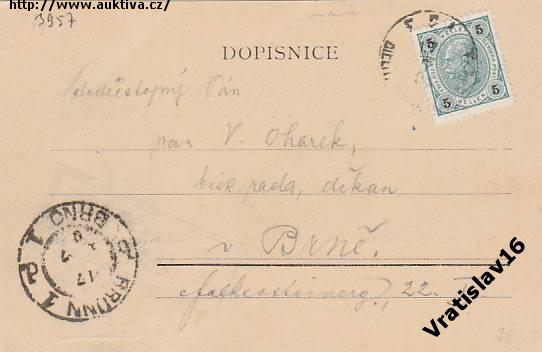 http://www.auktiva.cz/
3957
DOPISNICE
5 HELLER 5
5 HELLER 5
Pán
pan V. Oharek,
bisk. rada, děkan
v Brně.
22.
BRÜNN 1
BRNO 1
17
Vratislav16